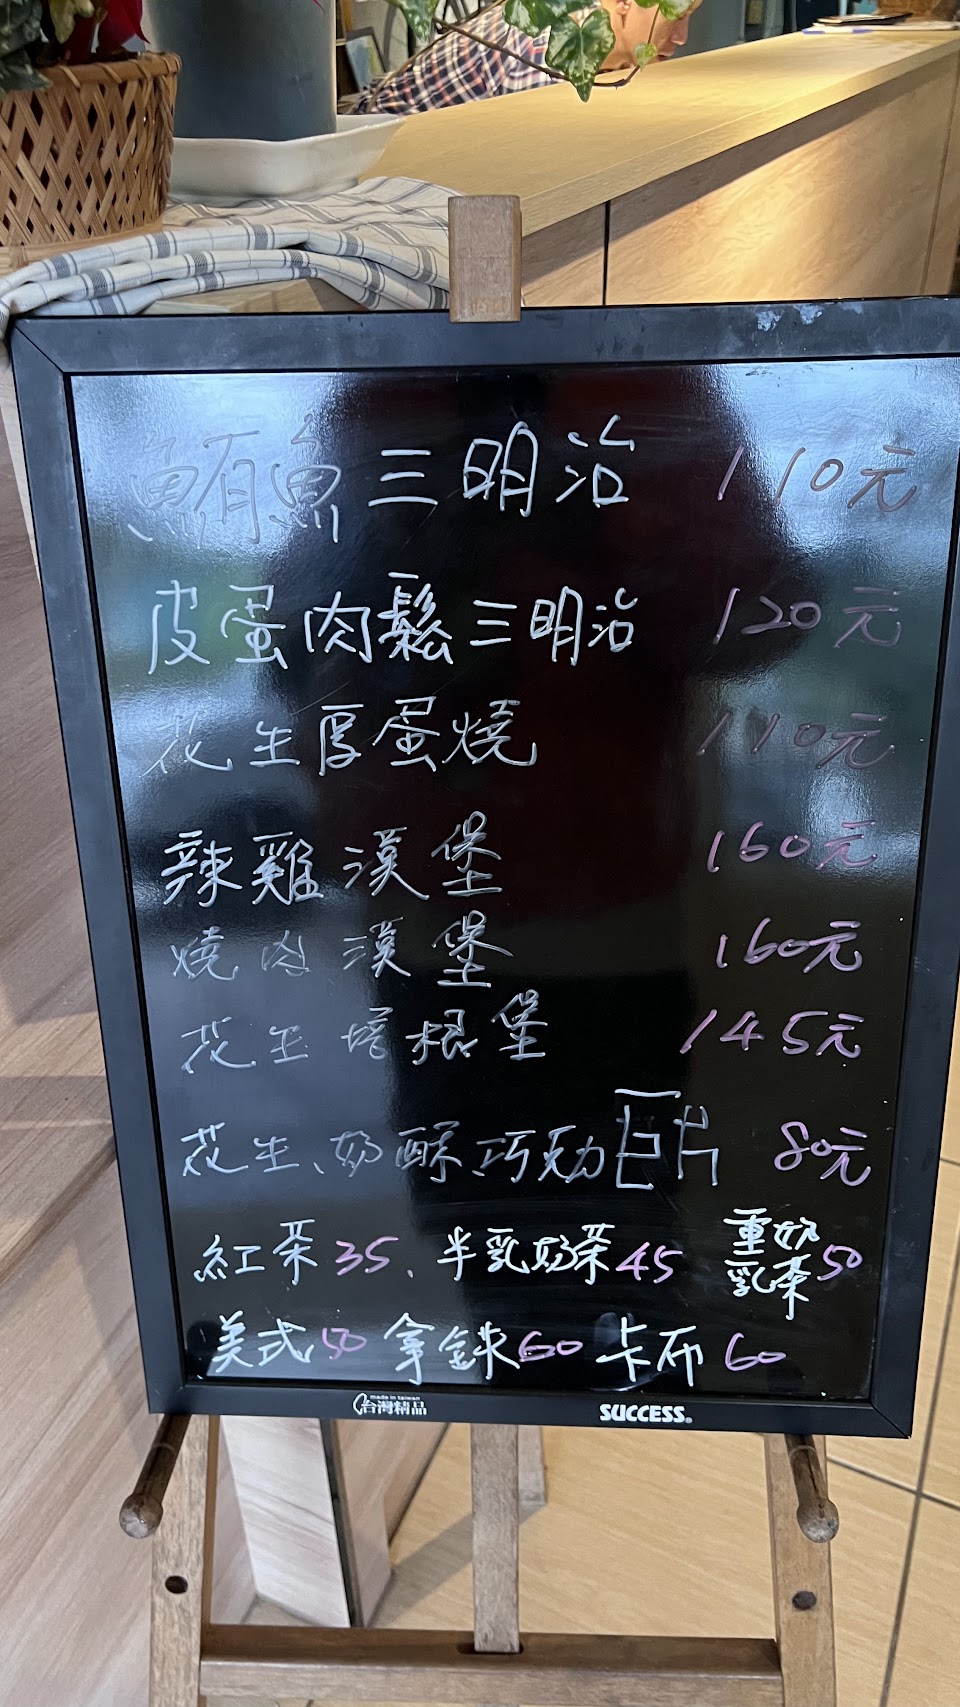 鮪魚三明治 110元
皮蛋肉鬆三明治 120元
花生厚蛋燒 110元
辣雞漢堡 160元
燒肉漢堡 160元
花生培根堡 145元
花生、奶酥、巧克力 80元
紅茶35、半乳奶茶45 重乳奶茶50
美式50 拿鐵60 卡布60
made in taiwan
台灣精品
SUCCESS